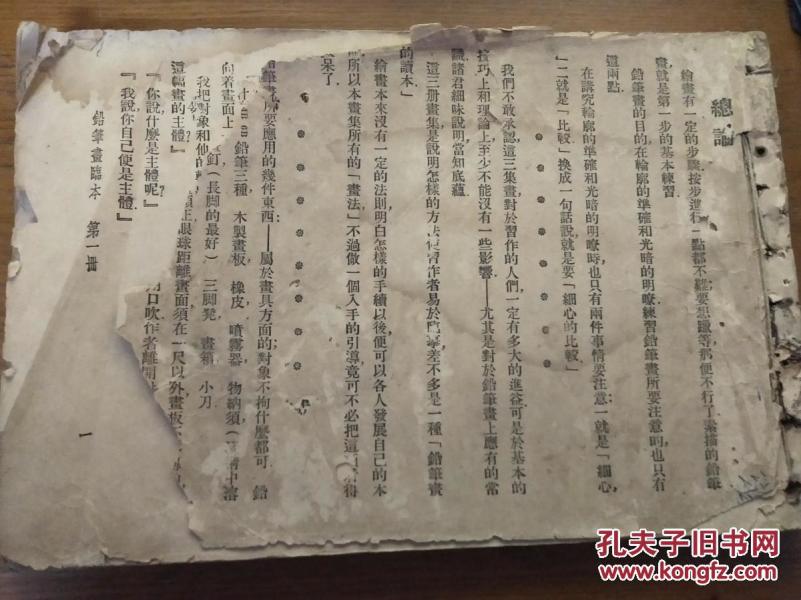 總論
繪畫有一定的步驟按步進行一點都不難要想躐等那便不行了素描的鉛筆
畫，就是第一步的基本練習．
鉛筆畫的目的在輪廓的準確和光暗的明瞭練習鉛筆畫所要注意的也只有
這兩點．
在講究輪廓的準確和光暗的明瞭時，也只有兩件事情要注意：一就是「細心，
」二就是「比較」換成一句話說，就是要「細心的比較」
我們不敢承認，這三集畫，對於習作的人們，一定有多大的進益可是於基本的
技巧上和理論上，至少不能沒有一些影響——尤其是對於鉛筆畫上應有的常
識，諸君細味說明，當知底蘊．
這三册畫集，是說明怎樣的方法，使習作者易於臨摹，差不多是一種「鉛筆畫
的讀本．」
繪畫本來沒有一定的法則，明白怎樣的手續以後，便可以各人發展自己的本
所以本畫集所有的「畫法」不過做一個入手的引導，竟可不必把這
呆了．
筆畫所要應用的幾件東西：——屬於畫具方面的；對象不拘什麼都可． 鉛
鉛筆三種 木製畫板 橡皮 噴霧器 物納須
向着畫面上 釘（長脚的最好） 三脚凳 畫箱 小刀
我把對象和他的 眼球距離畫面，須在一尺以外，畫板
這幅畫的主體？』
『你說什麼是主體呢？』 口吹作者離開
『我說你自己便是主體』
鉛筆畫臨本 第一冊 一
孔夫子旧书网
www.kongfz.com